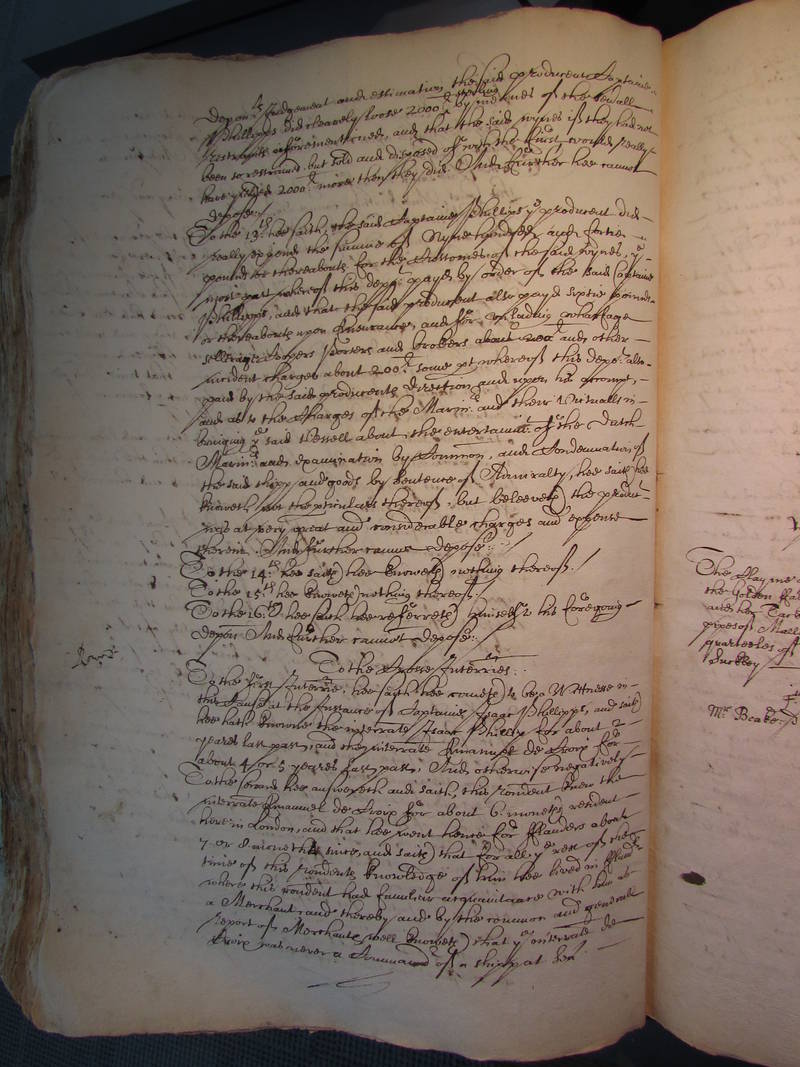 depon:ts Judgement and estimation the said producent Captaine
Phillipps did clearely loose 2000 li sterling by meanes of the sewall
restraints aforementioned, and that the said wynes if they had not
been so restrained but sold and disposed of with the first would really
have yeilded 2000 li more then they did. And further hee cannot
depose./
To the 13:th hee saith, the said Captaine Phillips ye producent did
really expend the summe of Nyne hundred and fortie
pounds or thereabouts for the Customes of the said wynes, ye
most part whereof this depot payd by order of the said Captaine
Phillipps, and that the said producent also payd sixtie pounds
or thereabouts upon Insurance, and for unlading wharfage
Coopers Porters and brokers about 200 li and other
incident charges about 200 li some pt whereof this depot also
paid by the said producents direction and upon his accompt,
and as to the Charges of the Marinrs and their Victualls in
bringing ye said Vessell about, the entertainmt of the Dutch
Marinrs and examination by Common, and Condemnation of
the said shipp and goods by sentence of Admiralty, hee saith hee
knoweth not the pticulars thereof, but beleeveth the produt
was at very great and considerable charges and expence
therein. And further cannot depose./
To the 14:th hee saith hee knoweth nothing thereof./
To the 15:th hee knoweth nothing thereof./
To the 16:th hee saith hee referreth himselfe to his foregoing
depon And further cannot depose./
To the Crosse Interries.
To the first Interrie. hee saith hee cometh to be a Wittnesse in
this Cause at the Instance of Captaine Isaac Phillipps, and saith
hee hath knowne the interrate Isaac Phillips for about 2
yeares last past, and the interrate Emanuel de Croix for
about 4 or 5 yeares last past. And otherwise negatively
To the second hee answereth and saith, this rondent knew the
interrate Emanuel de Croix for about 6 moneths resident
here in London, and that hee went hence for Flanders about
7 or 8 moneths since, and saith that for all ye rest of the
time of this rondents knowledge of him hee lived in Flandrs
where this rondent had familiar acquaintance with him as
a Merchant, and thereby and by the common and generall
report of Merchants, well knoweth that ye interrate de
Croix was never a Commandr of a shipp at sea.
The
the Golden
and her
pipes of
quarteeles of
Suckley
Mr Beake